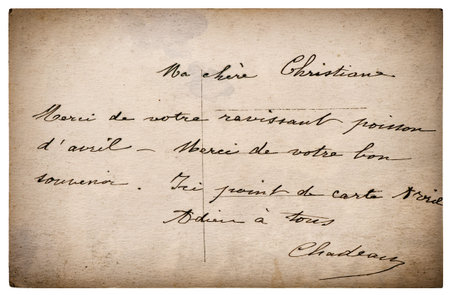 Ma chère Christiane
Merci de votre ravissant poisson
d'avril - Merci de votre bon
souvenir. Ici point de carte Avril
Adieu à tous
Chadeau